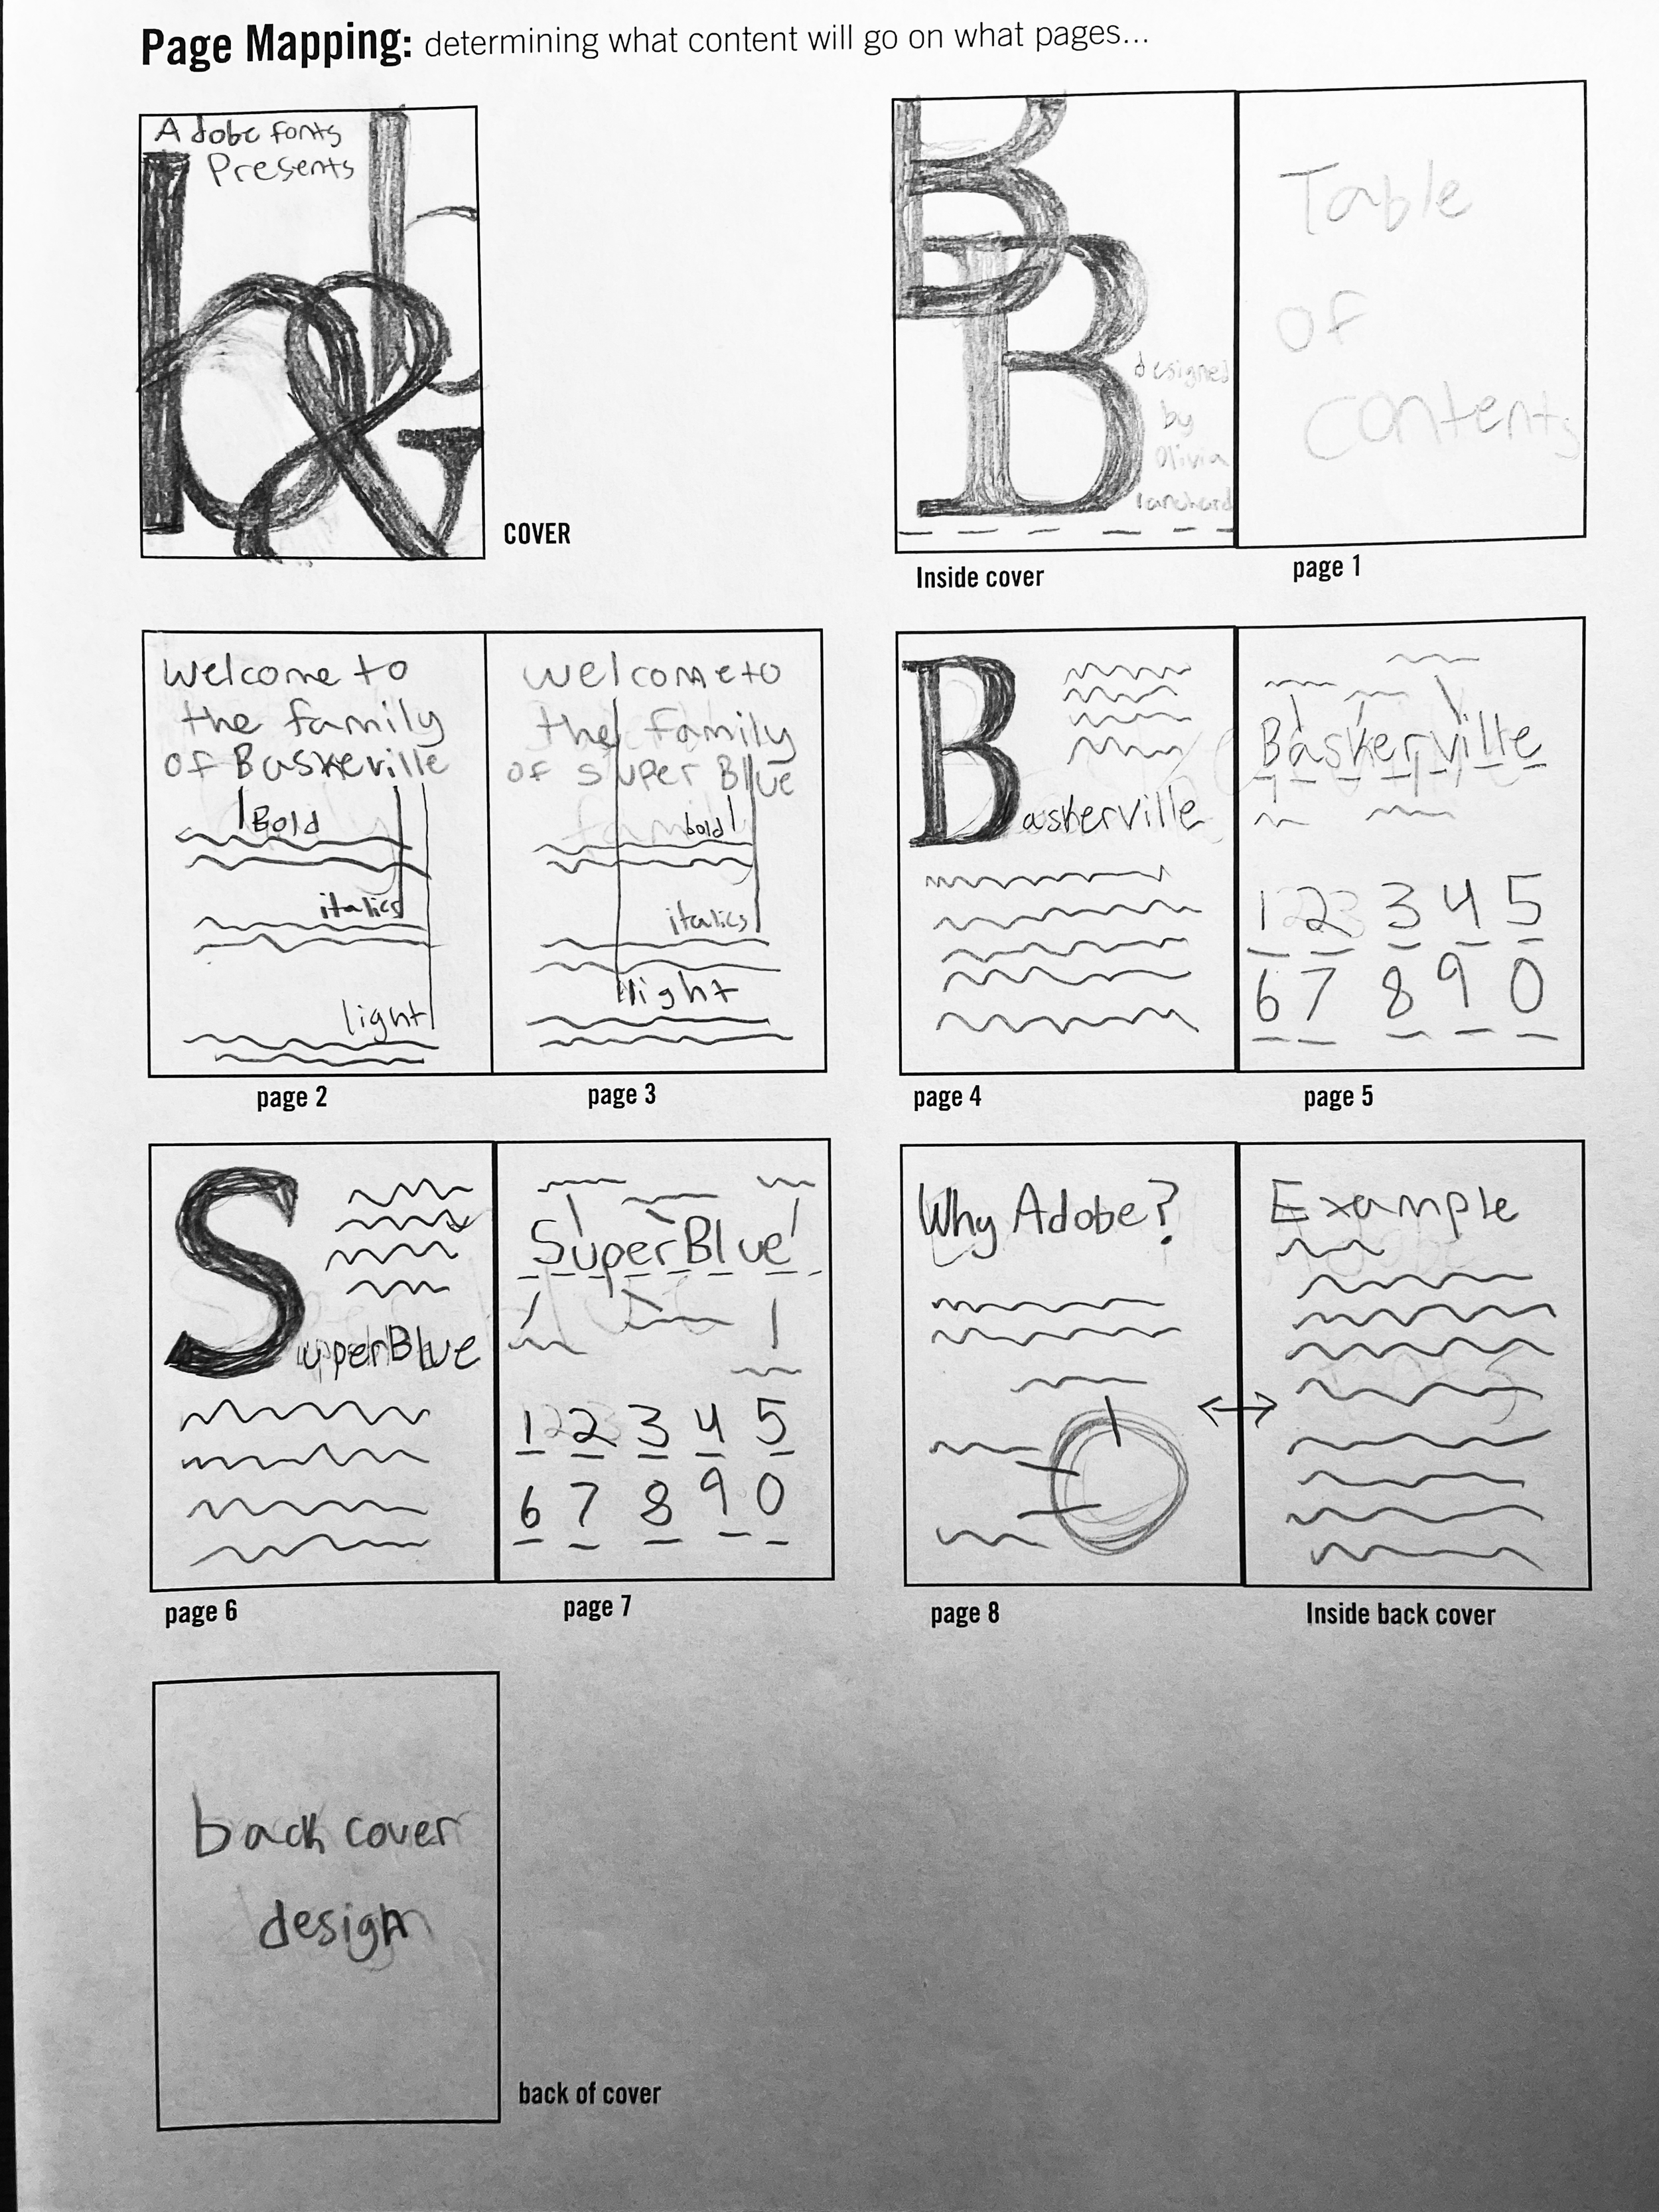 Page Mapping: determining what content will go on what pages...
Adobe fonts
Presents
COVER
designed
by
Olivia
Inside cover
Table
of
contents
page 1
Welcome to
the family
of Baskeville
Bold
italics
light
page 2
welcome to
the family
of super Blue
bold
italics
light
page 3
Baskerville
page 4
Baskerville
1 2 3 4 5
6 7 8 9 0
page 5
SuperBlue
page 6
SuperBlue
1 2 3 4 5
6 7 8 9 0
page 7
Why Adobe?
page 8
Example
Inside back cover
back cover
design
back of cover